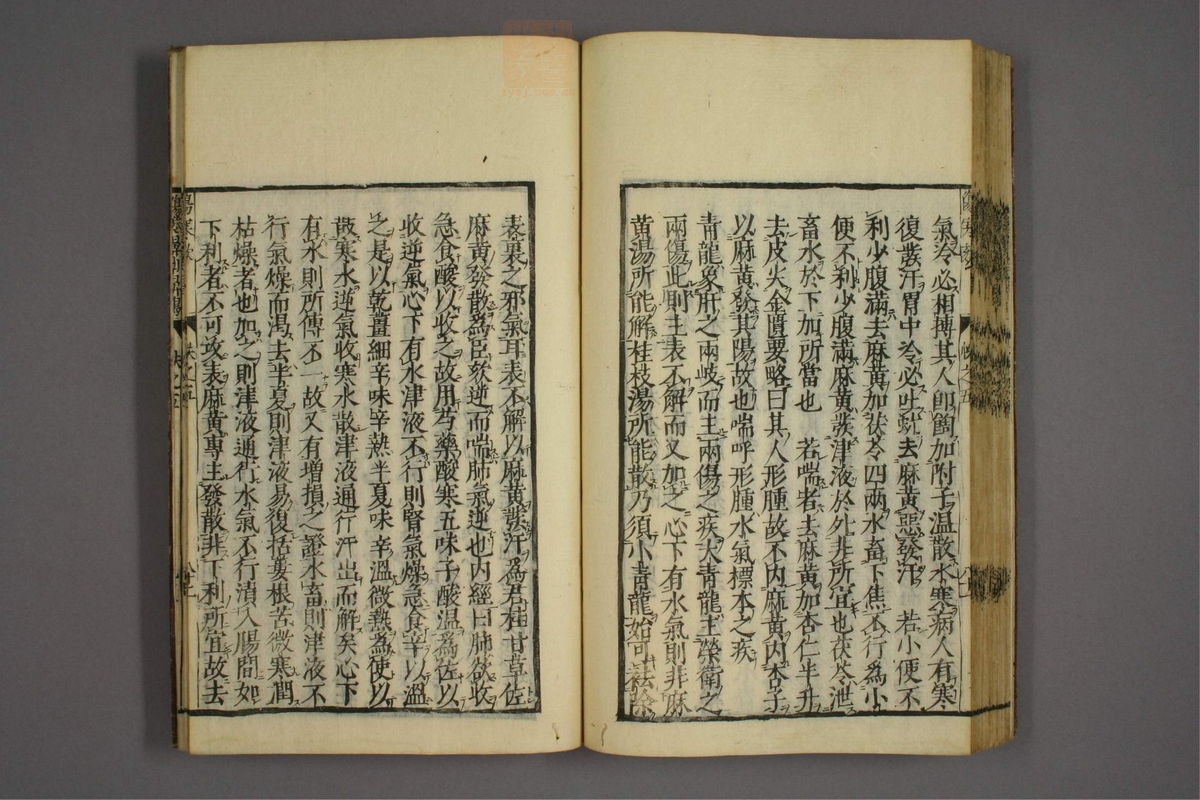 氣冷必相搏其人卽𩚬加附子温散水寒病人有寒
復發汗胃中冷必吐蚘去麻黃惡發汗　若小便不
利少腹滿去麻黃加茯苓四兩水畜下焦不行爲小
便不利少腹滿麻黃發津液於外非所宜也茯苓泄
畜水於下加所當也　若喘者去麻黃加杏仁半升
去皮尖金匱要略曰其人形腫故不内麻黃内杏子
以麻黃發其陽故也喘呼形腫水氣標本之疾
青龍象肝之兩岐而主兩傷之疾大青龍主榮衛之
兩傷此則主表不解而又加之心下有水氣則非麻
黃湯所能解桂枝湯所能散乃須小青龍始可祛除
表裏之邪氣耳表不解以麻黃發汗爲君桂甘草佐
麻黃發散爲臣欬逆而喘肺氣逆也内經曰肺欲收
急食酸以收之故用芍藥酸寒五味子酸温爲佐以
收逆氣心下有水津液不行則腎氣燥急食辛以温
之是以乾薑細辛味辛熱半夏味辛溫微熱爲使以
散寒水逆氣收寒水散津液通行汗出而解矣心下
有水則所傳不一故又有增損之證水畜則津液不
行氣燥而渴去半夏則津液易復栝蔞根苦微寒潤
枯燥者也加之則津液通行水氣不行漬入腸間如
下利者不可攻表麻黃專主發散非下利所宜故去